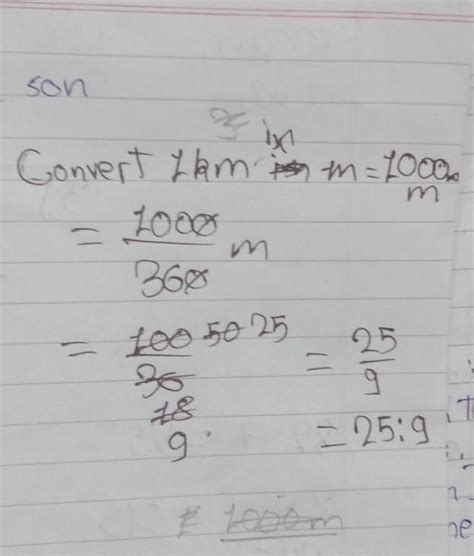 son
Convert 1km in m = 1000
m
= 1000/360 m
= 100 50 25 / 36 18 9 = 25/9
= 25:9
1000m